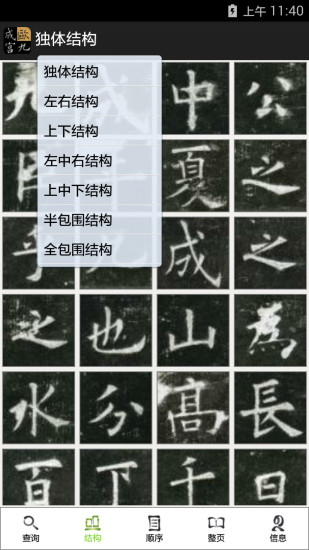 上午 11:40
成 欧
宫 九
独体结构
独体结构
左右结构
上下结构
左中右结构
上中下结构
半包围结构
全包围结构
九 成 中 公
夏 之
乎 九 成 之
之 也 山 為
水 分 高 長
百 下 千 日
查询 结构 顺序 整页 信息